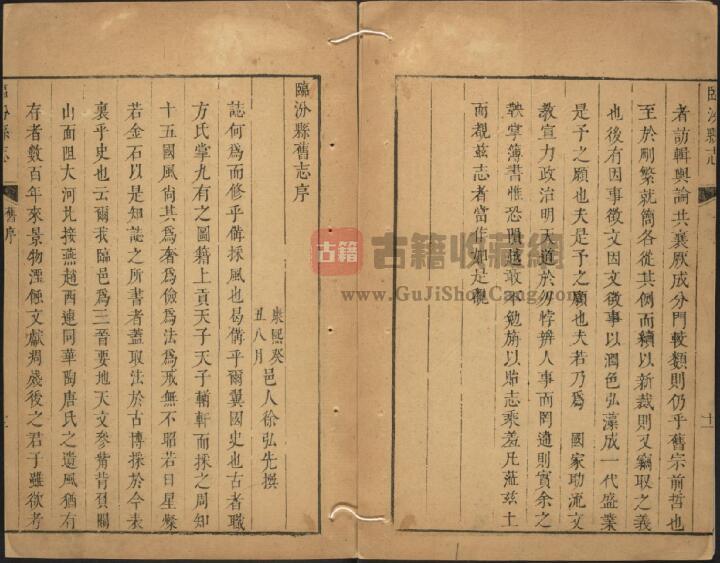 臨汾縣志
十一
者訪輯輿論共襄厥成分門較類則仍乎舊宗前哲也
至於刪繁就簡各從其例而續以新裁則又竊取之義
也後有因事徵文因文徵事以潤色弘藻成一代盛業
是予之願也夫是予之願也夫若乃爲 國家助流文
教宣力政治明天道於勿悖辨人事而罔遺則實余之
鞅掌簿書惟恐隕越敢不勉旃以貽志乘羞凡蒞茲土
而覩茲志者當作如是觀
臨汾縣舊志序
康熙癸丑八月 邑人徐弘先撰
誌何爲而修乎備採風也曷備乎爾翼國史也古者職
方氏掌九有之圖籍上貢天子天子輶軒而採之周知
十五國風尚其爲奢爲儉爲法爲戒無不昭若日星粲
若金石以是知誌之所書者蓋取法於古博採於今表
裏乎史也云爾我臨邑爲三晉要地天文參觜背負關
山面阻大河北接燕趙西連同華陶唐氏之遺風猶有
存者數百年來景物湮徂文獻凋殘後之君子雖欲考
臨汾縣志
舊序
古籍
古籍收藏網
www.GuJiShouCang.com